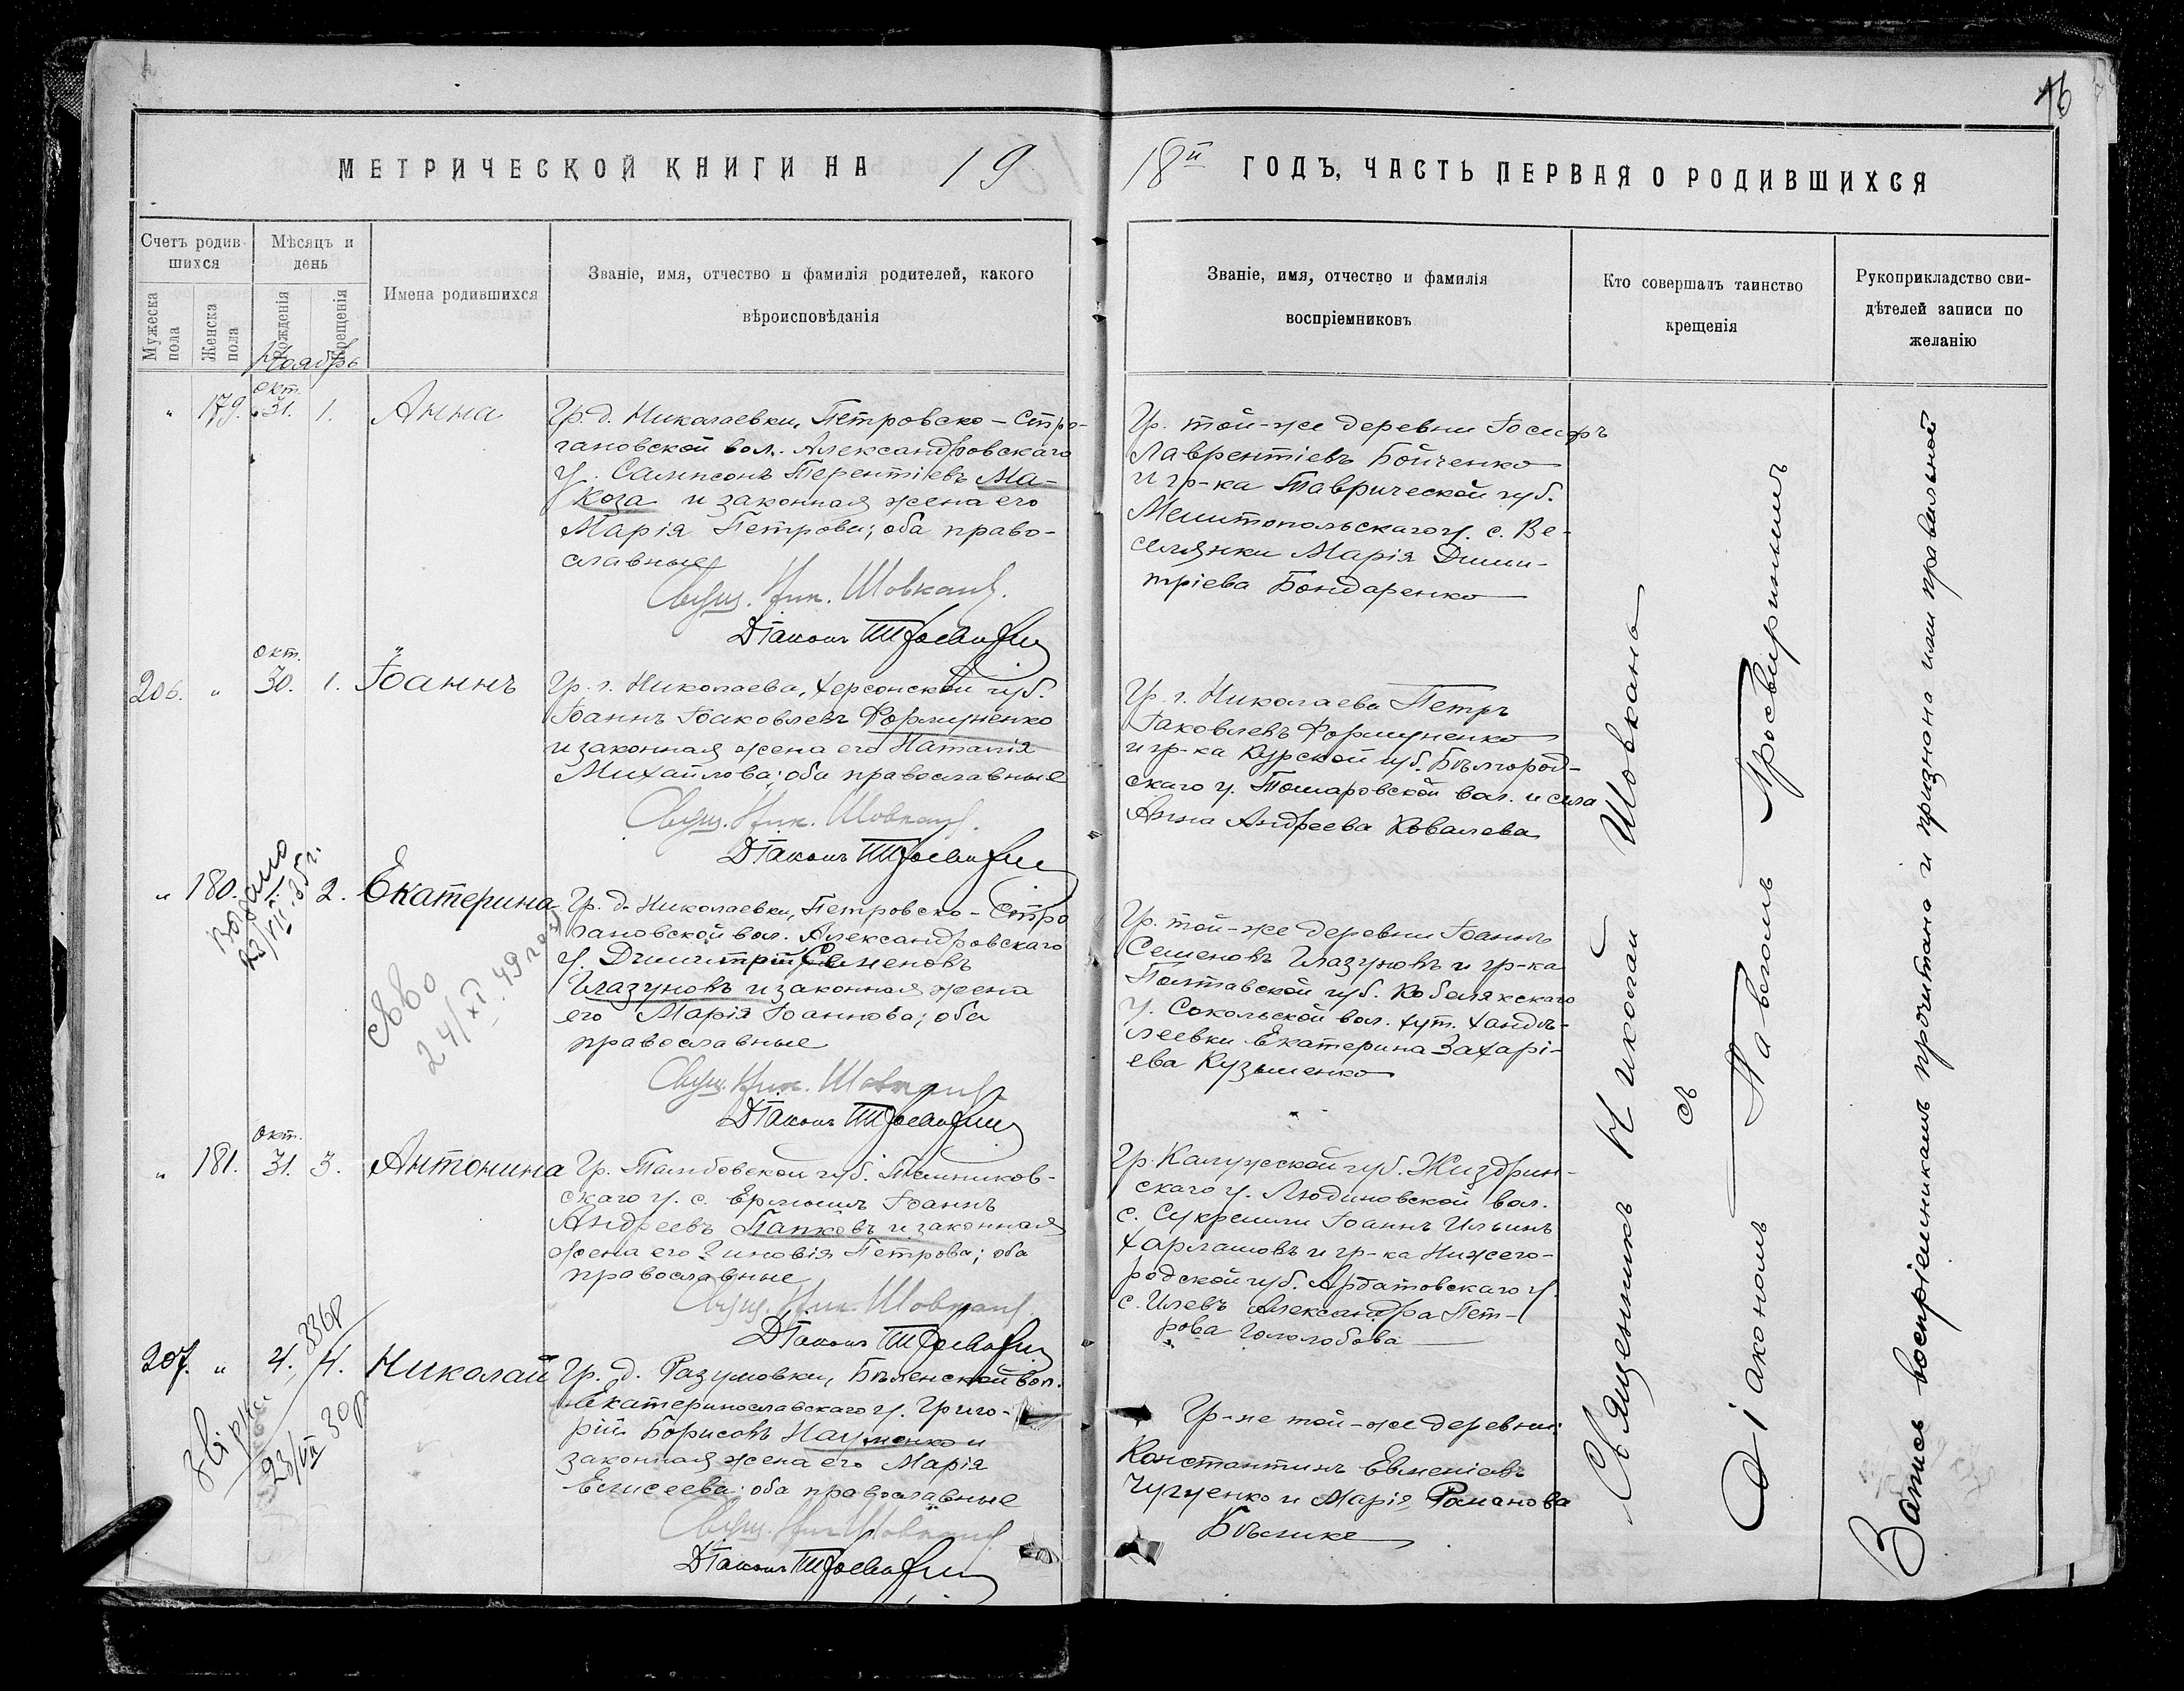 16
МЕТРИЧЕСКОЙ КНИГИ НА 19
18й ГОДЪ, ЧАСТЬ ПЕРВАЯ О РОДИВШИХСЯ
Счетъ родив-
шихся
Мужеска
пола
Женска
пола
Мѣсяцъ и
день
Рожденія
Крещенія
Имена родившихся
Званіе, имя, отчество и фамилія родителей, какого
вѣроисповѣданія
Званіе, имя, отчество и фамилія
воспріемниковъ
Кто совершалъ таинство
крещенія
Рукоприкладство сви-
дѣтелей записи по
желанію
Ноябрь
окт.
" 179. 31. 1. Анна
Гр. д. Николаевки, Петровско-Стро-
гановской вол. Александровскаго
у. Сампсонъ Терентіевъ Ма-
коза и законная жена его
Марія Петрова; оба право-
славные
Свящ. Ник. Шовкань.
Діаконъ
Гр. той-же деревни Іосифъ
Лаврентіевъ Бойченко
и гр-ка Таврической губ.
Мелитопольскаго у. с. Ве-
селянки Марія Дими-
тріева Бондаренко
окт.
206. " 30. 1. Іоаннъ
Гр. г. Николаева, Херсонской губ.
Іоаннъ Іаковлевъ Формуненко
и законная жена его Наталія
Михайлова; оба православные
Свящ. Ник. Шовкань.
Діаконъ
Гр. г. Николаева Петръ
Іаковлевъ Формуненко
и гр-ка Курской губ. Бѣлгород-
скаго у. Томаровской вол. и села
Анна Андреева Ковалева
" 180. 1. 2. Екатерина
Выдано
23/VII 35 г.
св-во
24/XI 49 года
Гр. д. Николаевки, Петровско-Стро
гановской вол. Александровскаго
у. Димитрій Семеновъ
Глазуновъ и законная жена
его Марія Іоаннова; оба
православные
Свящ. Ник. Шовкань.
Діаконъ
Гр. той-же деревни Іоаннъ
Семеновъ Глазуновъ и гр-ка
Полтавской губ. Кобелякскаго
у. Сокольской вол. хут. Ханда-
леевки Екатерина Захарі-
ева Кузьменко
окт.
" 181. 31. 3. Антонина
Гр. Тамбовской губ. Темников-
скаго у. с. Ермишь Іоаннъ
Андреевъ Папковъ и законная
жена его Зиновія Петрова; оба
православные
Свящ. Ник. Шовкань.
Діаконъ
Гр. Калужской губ. Жиздрин-
скаго у. Людиновской вол.
с. Сукремли Іоаннъ Ильинъ
Харламовъ и гр-ка Нижего-
родской губ. Ардатовскаго у.
с. Илевъ Александра Пет-
рова Гололобова
207. " 4. 4. Николай
23/VII 30 р.
Гр. д. Разумовки, Бѣленской вол.
Екатеринославскаго у. Григо-
рій Борисовъ Науменко и
законная жена его Марія
Елисеева; оба православные
Свящ. Ник. Шовкань
Діаконъ
Гр-не той-же деревни:
Константинъ Евменіевъ
Чугуенко и Марія Романова
Бѣлик
Священникъ Николай Шовкань
съ
Діакономъ Павломъ Просвирнинымъ
Запись воспріемникамъ прочитана и признана ими правильной